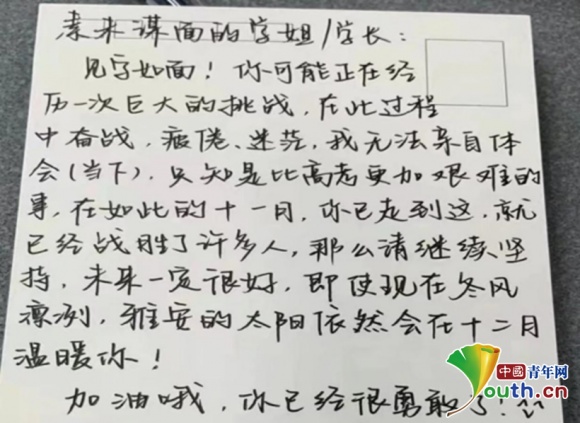 素未谋面的学姐/学长：
见字如面！你可能正在经
历一次巨大的挑战，在此过程
中奋战，疲倦、迷茫，我无法亲自体
会(当下)，只知是比高考更加艰难的
事，在如此的十一月，你已走到这，就
已经战胜了许多人，那么请继续坚
持，未来一定很好，即使现在冬风
凛冽，雅安的太阳依然会在十二月
温暖你！
加油哦，你已经很勇敢了！
中國青年网
Youth.cn